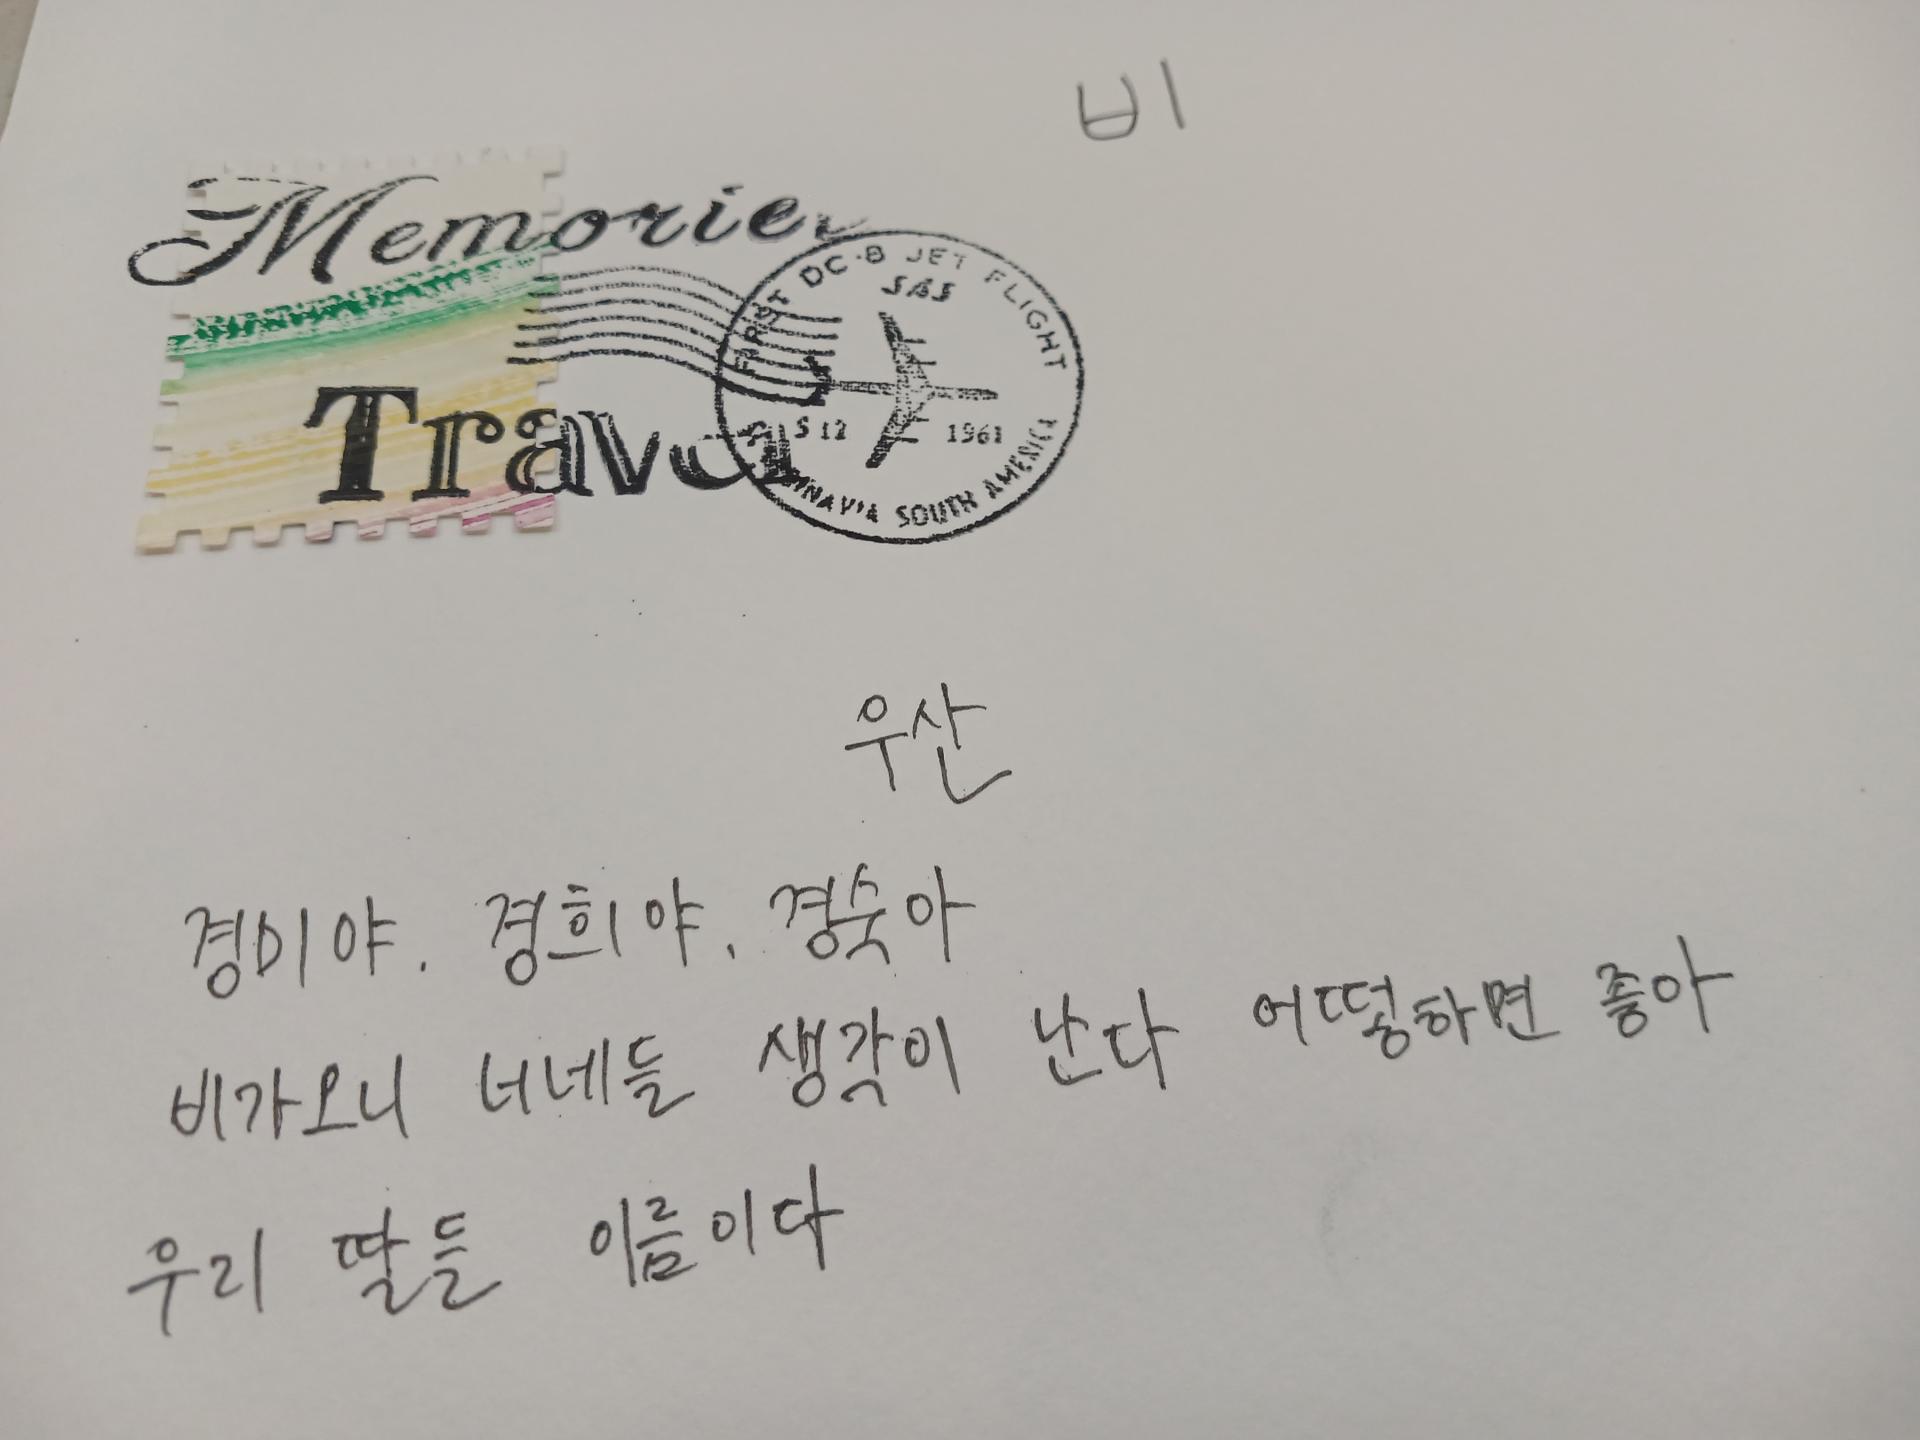 비
Memorie
FIRST DC-8 JET FLIGHT
SAS
S 12 1961
SOUTH AMERICA
Travel
우산
경미야. 경희야. 경숙아
비가오니 너네들 생각이 난다 어떻하면 좋아
우리 딸들 이름이다